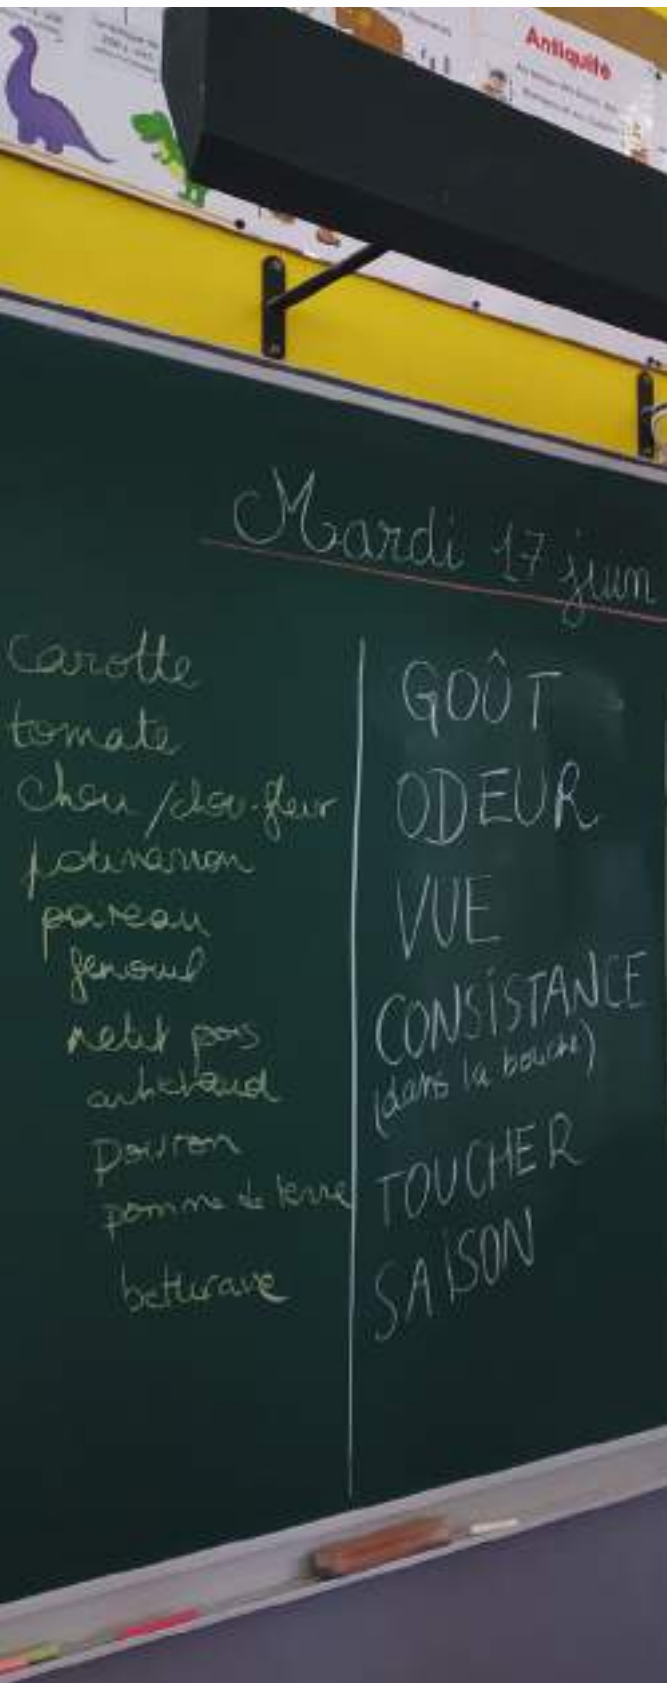 Antiquité
Mardi 17 juin
carotte
tomate
chou / chou-fleur
potimarron
poireau
fenouil
petit pois
artichaud
poivron
pomme de terre
betterave
GOÛT
ODEUR
VUE
CONSISTANCE
(dans la bouche)
TOUCHER
SAISON